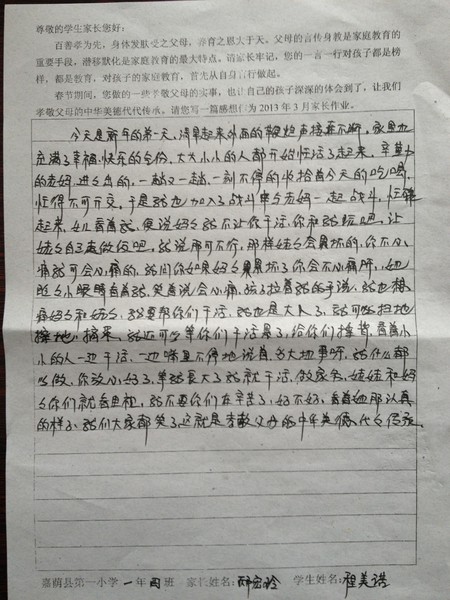 尊敬的学生家长您好：
百善孝为先，身体发肤受之父母，养育之恩大于天。父母的言传身教是家庭教育的
重要手段，潜移默化是家庭教育的最大特点。请家长牢记，您的一言一行对孩子都是榜
样，都是教育，对孩子的家庭教育，首先从自身言行做起。
春节期间，您做的一些孝敬父母的实事，也让自己的孩子深深的体会到了，让我们
孝敬父母的中华美德代代传承。请您写一篇感想作为2013年3月家长作业。
今天是新年的第一天，清早起来外面的鞭炮声接连不断，家里也
充满了幸福，快乐的气份，大大小小的人都开始忙活了起来，辛勤
的老妈，进进出出的，一趟又一趟，一刻不停的收拾着今天的吃喝，
忙得不可开交，于是我也加入了战斗中与老妈一起战斗，忙碌
起来，女儿看着我，便说妈妈我不让你干活，你和我玩吧，让
姥姥自己去做饭吧，我说那可不行，那样姥姥会累坏的，你不心
痛我可会心痛的，我问你如果妈妈累坏了你会不心痛吗，她
眨眨小眼睛看着我，笑着说会心痛，孩子拉着我的手说，我也
疼妈妈和姥姥，我要帮你们干活，我也是大人了，我可以扫地
擦地，摘菜，我还可以等你们干活累了，给你们捶背，看着小
小的人一边干活，一边嘴里不停地说着
以做，你放心好了，等我长大了我就干活，做家务，姥姥和妈
妈你们就
的样子，我们大家都笑了这就是孝敬父母的中华美德代代传承。
嘉荫县第一小学 一年四班 家长姓名： 学生姓名：程美诺